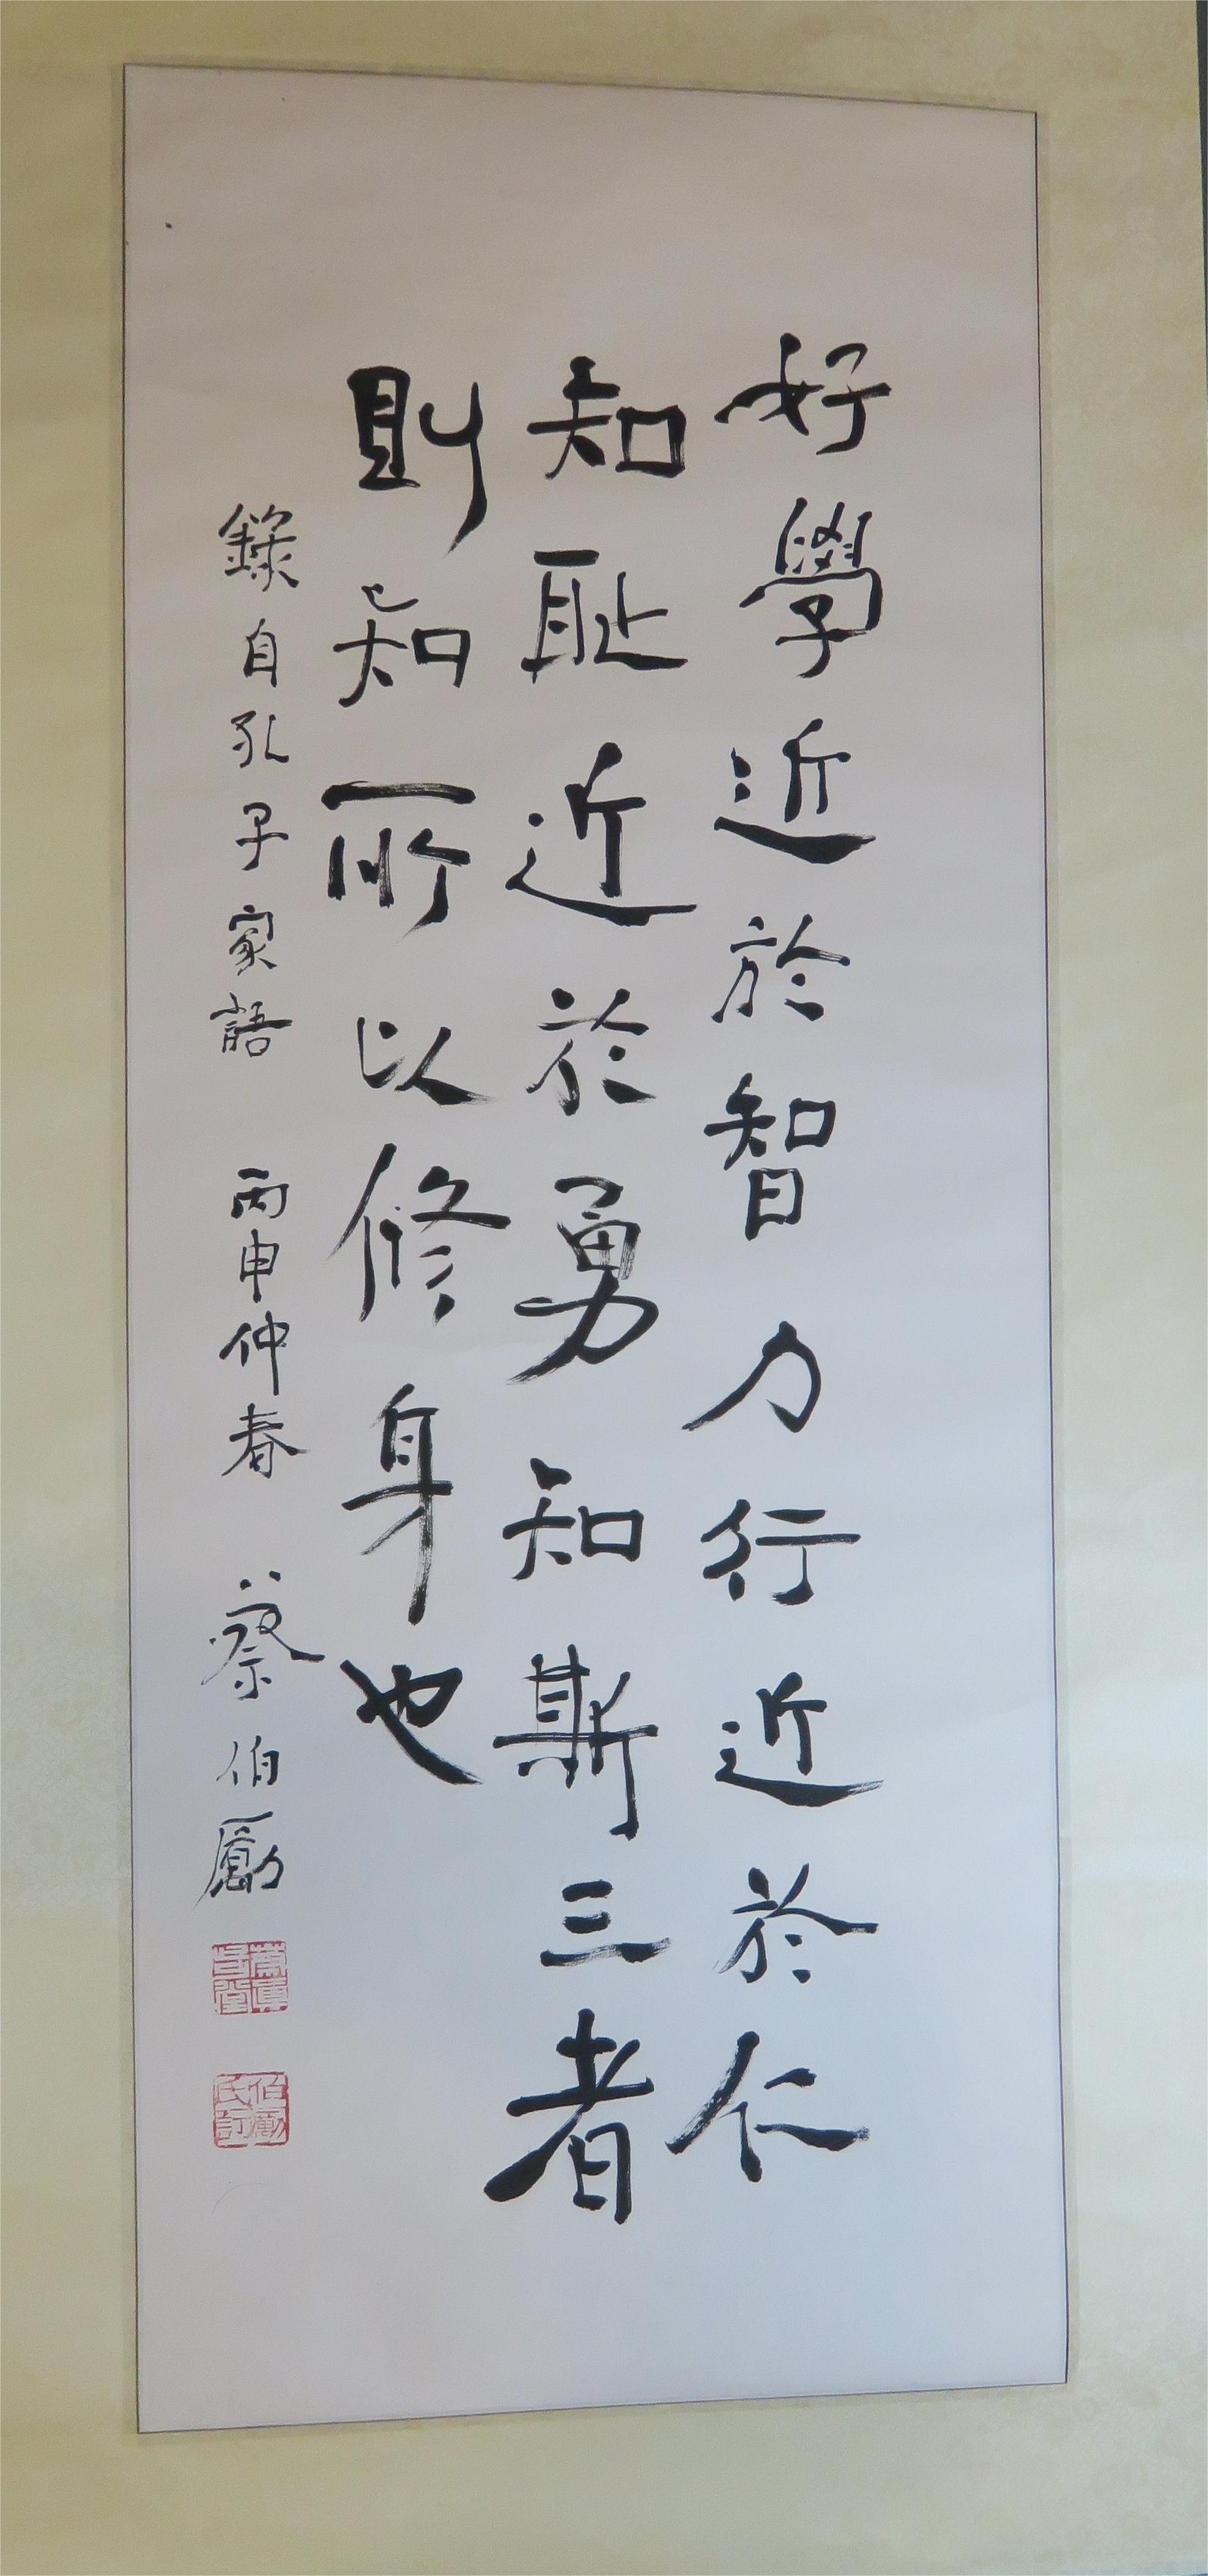 好學近於智力行近於仁
知恥近於勇知斯三者
則知所以修身也
錄自孔子家語 丙申仲春 蔡伯勵
伯勵氏訂